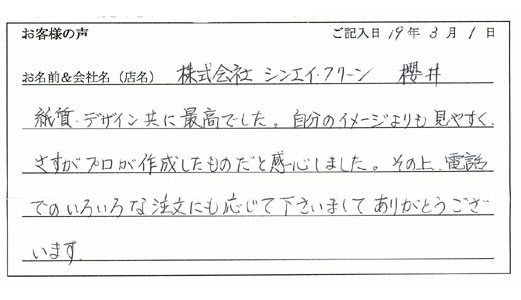 お客様の声 ご記入日 19年 3月 1日
お名前&会社名（店名） 株式会社 シンエイ・クリーン 櫻井
紙質・デザイン共に最高でした。自分のイメージよりも見やすく、
さすがプロが作成したものだと感心しました。その上、電話
でのいろいろな注文にも応じて下さいましてありがとうござ
います。